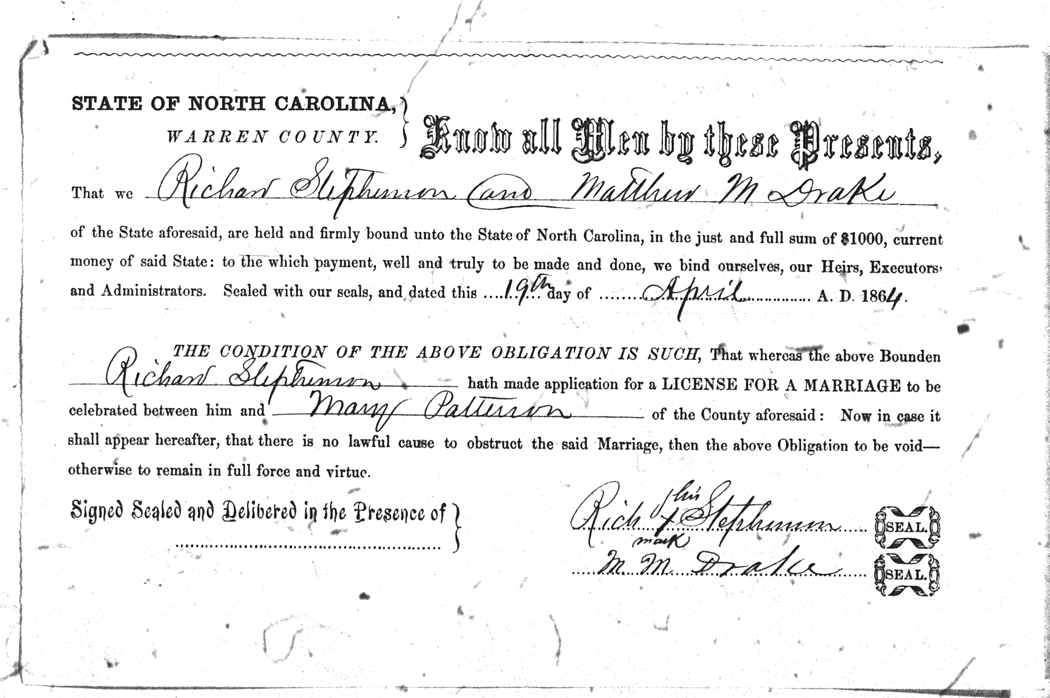 STATE OF NORTH CAROLINA,
WARREN COUNTY.
Know all Men by these Presents,
That we Richard Stephenson and Matthew M Drake
of the State aforesaid, are held and firmly bound unto the State of North Carolina, in the just and full sum of $1000, current
money of said State: to the which payment, well and truly to be made and done, we bind ourselves, our Heirs, Executors,
and Administrators. Sealed with our seals, and dated this 19th day of April A. D. 1864.
THE CONDITION OF THE ABOVE OBLIGATION IS SUCH, That whereas the above Bounden
Richard Stephenson hath made application for a LICENSE FOR A MARRIAGE to be
celebrated between him and Mary Patterson of the County aforesaid: Now in case it
shall appear hereafter, that there is no lawful cause to obstruct the said Marriage, then the above Obligation to be void—
otherwise to remain in full force and virtue.
Signed Sealed and Delivered in the Presence of
his
Rich x Stephenson SEAL.
mark
M. M. Drake SEAL.